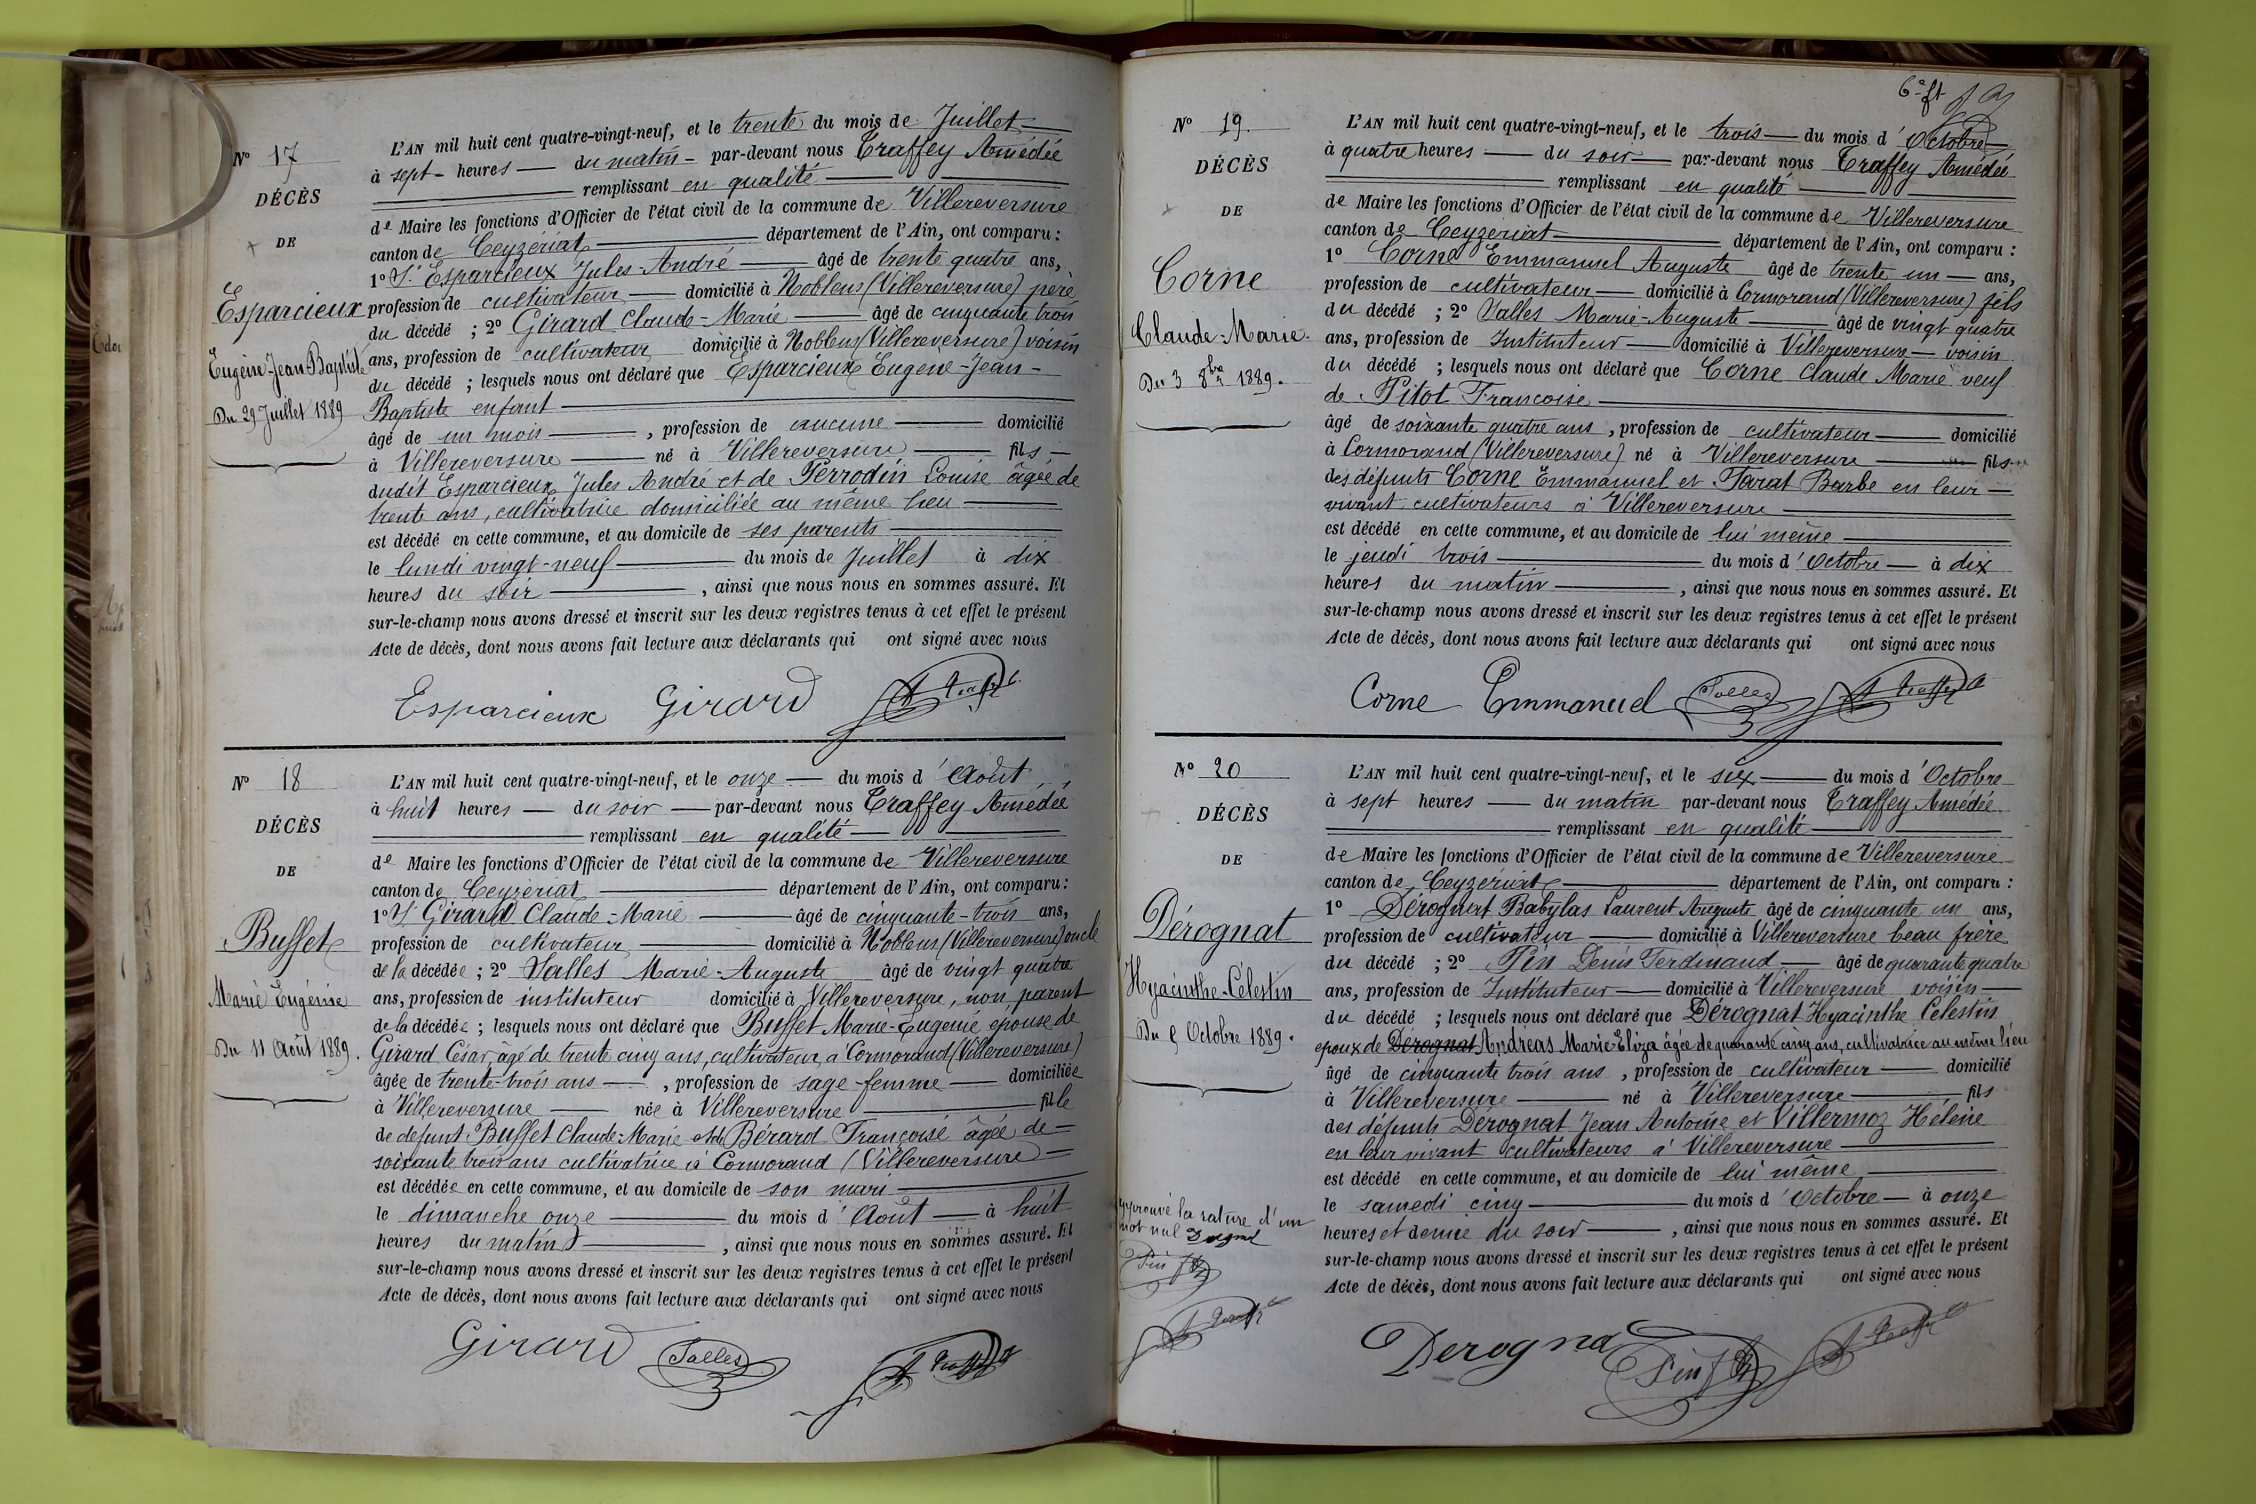 N° 17
DÉCÈS
DE
Esparcieux
Eugène-Jean-Baptiste
Du 29 Juillet 1889
L'AN mil huit cent quatre-vingt-neuf, et le trente du mois de Juillet
à sept heures du matin par-devant nous Traffey Amédée
remplissant en qualité
de Maire les fonctions d'Officier de l'état civil de la commune de Villereversure
canton de Ceyzériat département de l'Ain, ont comparu :
1° Sr Esparcieux Jules-André âgé de trente quatre ans,
profession de cultivateur domicilié à Noblens (Villereversure) père
du décédé ; 2° Girard Claude-Marie âgé de cinquante trois
ans, profession de cultivateur domicilié à Noblens (Villereversure) voisin
du décédé ; lesquels nous ont déclaré que Esparcieux Eugène-Jean-
Baptiste enfant
âgé de un mois , profession de aucune domicilié
à Villereversure né à Villereversure fils
dudit Esparcieux Jules André et de Perrodin Louise âgée de
trente ans, cultivatrice domiciliée au même lieu
est décédé en cette commune, et au domicile de ses parents
le lundi vingt-neuf du mois de Juillet à dix
heures du soir , ainsi que nous nous en sommes assuré. Et
sur-le-champ nous avons dressé et inscrit sur les deux registres tenus à cet effet le présent
Acte de décès, dont nous avons fait lecture aux déclarants qui ont signé avec nous
Esparcieux Girard
N° 18
DÉCÈS
DE
Buffet
Marie Eugénie
Du 11 Août 1889.
L'AN mil huit cent quatre-vingt-neuf, et le onze du mois d'Août
à huit heures du soir par-devant nous Traffey Amédée
remplissant en qualité
de Maire les fonctions d'Officier de l'état civil de la commune de Villereversure
canton de Ceyzériat département de l'Ain, ont comparu :
1° Sr Girard Claude-Marie âgé de cinquante-trois ans,
profession de cultivateur domicilié à Noblens (Villereversure) oncle
de la décédée ; 2° Salles Marie-Auguste âgé de vingt quatre
ans, profession de instituteur domicilié à Villereversure, non parent
de la décédée ; lesquels nous ont déclaré que Buffet Marie-Eugénie épouse de
Girard César, âgé de trente cinq ans, cultivateur à Cormorand (Villereversure)
âgée de trente-trois ans , profession de sage-femme domiciliée
à Villereversure née à Villereversure fille
de défunt Buffet Claude-Marie et de Bérard Françoise âgée de
soixante trois ans cultivatrice à Cormorand (Villereversure)
est décédée en cette commune, et au domicile de son mari
le dimanche onze du mois d'Août à huit
heures du matin , ainsi que nous nous en sommes assuré. Et
sur-le-champ nous avons dressé et inscrit sur les deux registres tenus à cet effet le présent
Acte de décès, dont nous avons fait lecture aux déclarants qui ont signé avec nous
Girard Salles
6e ft
N° 19.
DÉCÈS
DE
Corne
Claude-Marie.
Du 3 8bre 1889.
L'AN mil huit cent quatre-vingt-neuf, et le trois du mois d'Octobre
à quatre heures du soir par-devant nous Traffey Amédée
remplissant en qualité
de Maire les fonctions d'Officier de l'état civil de la commune de Villereversure
canton de Ceyzériat département de l'Ain, ont comparu :
1° Corne Emmanuel Auguste âgé de trente un ans,
profession de cultivateur domicilié à Cormorand (Villereversure) fils
du décédé ; 2° Salles Marie-Auguste âgé de vingt quatre
ans, profession de Instituteur domicilié à Villereversure voisin
du décédé ; lesquels nous ont déclaré que Corne Claude Marie veuf
de Pitot Françoise
âgé de soixante quatre ans , profession de cultivateur domicilié
à Cormorand (Villereversure) né à Villereversure fils
des défunts Corne Emmanuel et Tarat Barbe en leur
vivant cultivateurs à Villereversure
est décédé en cette commune, et au domicile de lui même
le jeudi trois du mois d'Octobre à dix
heures du matin , ainsi que nous nous en sommes assuré. Et
sur-le-champ nous avons dressé et inscrit sur les deux registres tenus à cet effet le présent
Acte de décès, dont nous avons fait lecture aux déclarants qui ont signé avec nous
Corne Emmanuel Salles
N° 20
DÉCÈS
DE
Dérognat
Hyacinthe-Célestin
Octobre 1889.
L'AN mil huit cent quatre-vingt-neuf, et le six du mois d'Octobre
à sept heures du matin par-devant nous Traffey Amédée
remplissant en qualité
de Maire les fonctions d'Officier de l'état civil de la commune de Villereversure
canton de Ceyzériat département de l'Ain, ont comparu :
1° Dérognat Babylas Laurent Auguste âgé de cinquante un ans,
profession de cultivateur domicilié à Villereversure beau frère
du décédé ; 2° Pin Denis Ferdinand âgé de quarante quatre
ans, profession de Instituteur domicilié à Villereversure voisin
du décédé ; lesquels nous ont déclaré que Dérognat Hyacinthe Célestin
époux de Dérognat Andréas Marie-Eliza âgée de quarante cinq ans, cultivatrice au même lieu
âgé de cinquante trois ans , profession de cultivateur domicilié
à Villereversure né à Villereversure fils
des défunts Dérognat Jean Antoine et Villermoz Hélène
en leur vivant cultivateurs à Villereversure
est décédé en cette commune, et au domicile de lui même
le samedi cinq du mois d'Octobre à onze
heures et demie du soir , ainsi que nous nous en sommes assuré. Et
sur-le-champ nous avons dressé et inscrit sur les deux registres tenus à cet effet le présent
Acte de décès, dont nous avons fait lecture aux déclarants qui ont signé avec nous
approuvé la rature d'un
mot nul
Pin
Derognat Pin